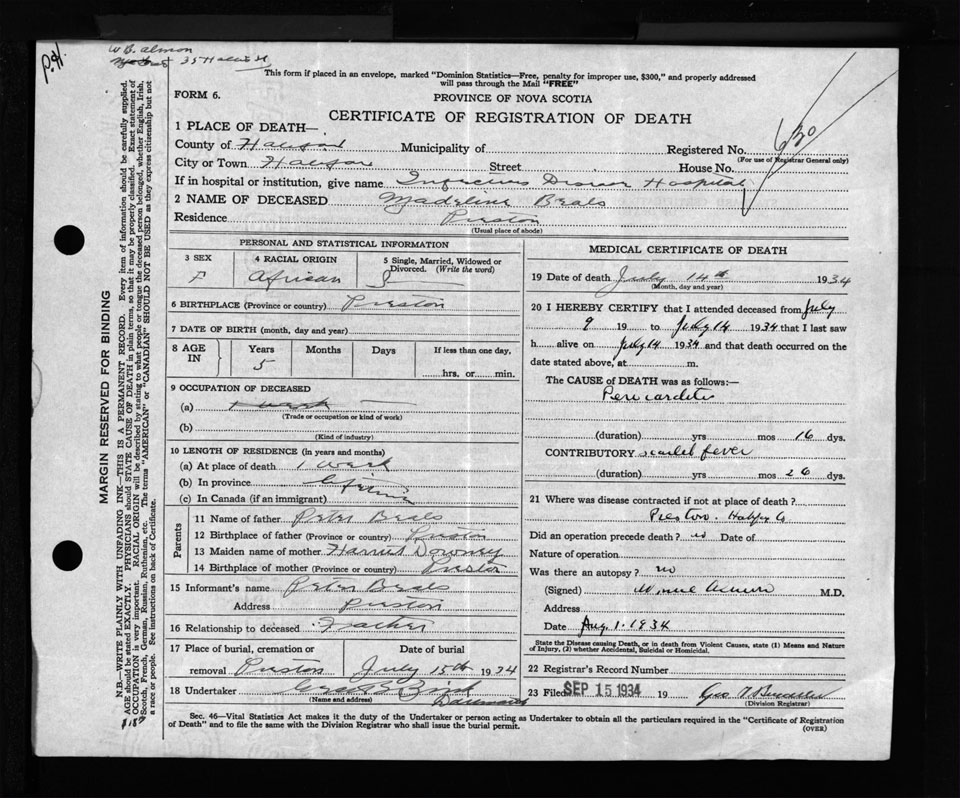 P.H.
W B. Almon
35 Hollis St
This form if placed in an envelope, marked "Dominion Statistics—Free, penalty for improper use, $300," and properly addressed
will pass through the Mail "FREE"
FORM 6.
PROVINCE OF NOVA SCOTIA
CERTIFICATE OF REGISTRATION OF DEATH
1 PLACE OF DEATH—
County of Halifax Municipality of Registered No. 630
(For use of Registrar General only)
City or Town Halifax Street House No.
If in hospital or institution, give name Infectious Disease Hospital
2 NAME OF DECEASED Madeline Beals
Residence Preston
(Usual place of abode)
PERSONAL AND STATISTICAL INFORMATION
3 SEX F
4 RACIAL ORIGIN African
5 Single, Married, Widowed or
Divorced. (Write the word) S
6 BIRTHPLACE (Province or country) Preston
7 DATE OF BIRTH (month, day and year)
8 AGE IN Years Months Days If less than one day,
5 hrs. or min.
9 OCCUPATION OF DECEASED
(a)
(Trade or occupation or kind of work)
(b)
(Kind of industry)
10 LENGTH OF RESIDENCE (in years and months)
(a) At place of death 1 week
(b) In province
(c) In Canada (if an immigrant)
Parents
11 Name of father Peter Beals
12 Birthplace of father (Province or country) Preston
13 Maiden name of mother Harriet Downey
14 Birthplace of mother (Province or country) Preston
15 Informant's name Peter Beals
Address Preston
16 Relationship to deceased Father
17 Place of burial, cremation or Date of burial
removal Preston July 15th 1934
18 Undertaker
(Name and address) Dartmouth
MEDICAL CERTIFICATE OF DEATH
19 Date of death July 14th 1934
(Month, day and year)
20 I HEREBY CERTIFY that I attended deceased from July
9 19 to July 14 1934 that I last saw
h alive on July 14 1934 and that death occurred on the
date stated above, at m.
The CAUSE OF DEATH was as follows:—
Pericarditis
(duration) yrs mos 16 dys.
CONTRIBUTORY scarlet fever
(duration) yrs mos 26 dys.
21 Where was disease contracted if not at place of death?
Preston. Halifax Co
Did an operation precede death? no Date of
Nature of operation
Was there an autopsy? no
(Signed) M.D.
Address
Date Aug. 1. 1934
State the Disease causing Death, or in death from Violent Causes, state (1) Means and Nature
of Injury, (2) whether Accidental, Suicidal or Homicidal.
22 Registrar's Record Number
23 Filed SEP 15 1934 19
(Division Registrar)
Sec. 46—Vital Statistics Act makes it the duty of the Undertaker or person acting as Undertaker to obtain all the particulars required in the "Certificate of Registration
of Death" and to file the same with the Division Registrar who shall issue the burial permit. (OVER)
MARGIN RESERVED FOR BINDING
N.B.—WRITE PLAINLY WITH UNFADING INK—THIS IS A PERMANENT RECORD. Every item of information should be carefully supplied.
AGE should be stated EXACTLY. PHYSICIANS should STATE CAUSE OF DEATH in plain terms, so that it may be properly classified. Exact statement of
OCCUPATION is very important. RACIAL ORIGIN will be described by stating to what people or tongue the deceased person belonged, whether English, Irish,
Scotch, French, German, Russian, Ruthenian, etc. The terms "AMERICAN" or "CANADIAN" SHOULD NOT BE USED as they express citizenship but not
a race or people. See instructions on back of Certificate.